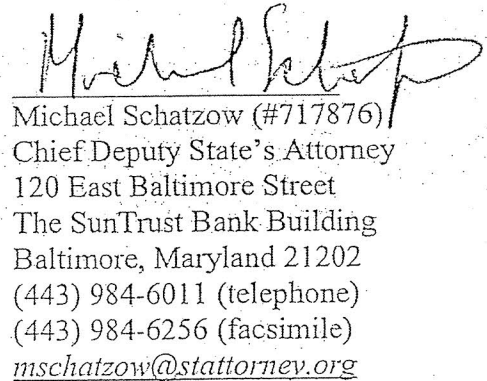 Michael Schatzow
Michael Schatzow (#717876)
Chief Deputy State's Attorney
120 East Baltimore Street
The SunTrust Bank Building
Baltimore, Maryland 21202
(443) 984-6011 (telephone)
(443) 984-6256 (facsimile)
mschatzow@stattorney.org